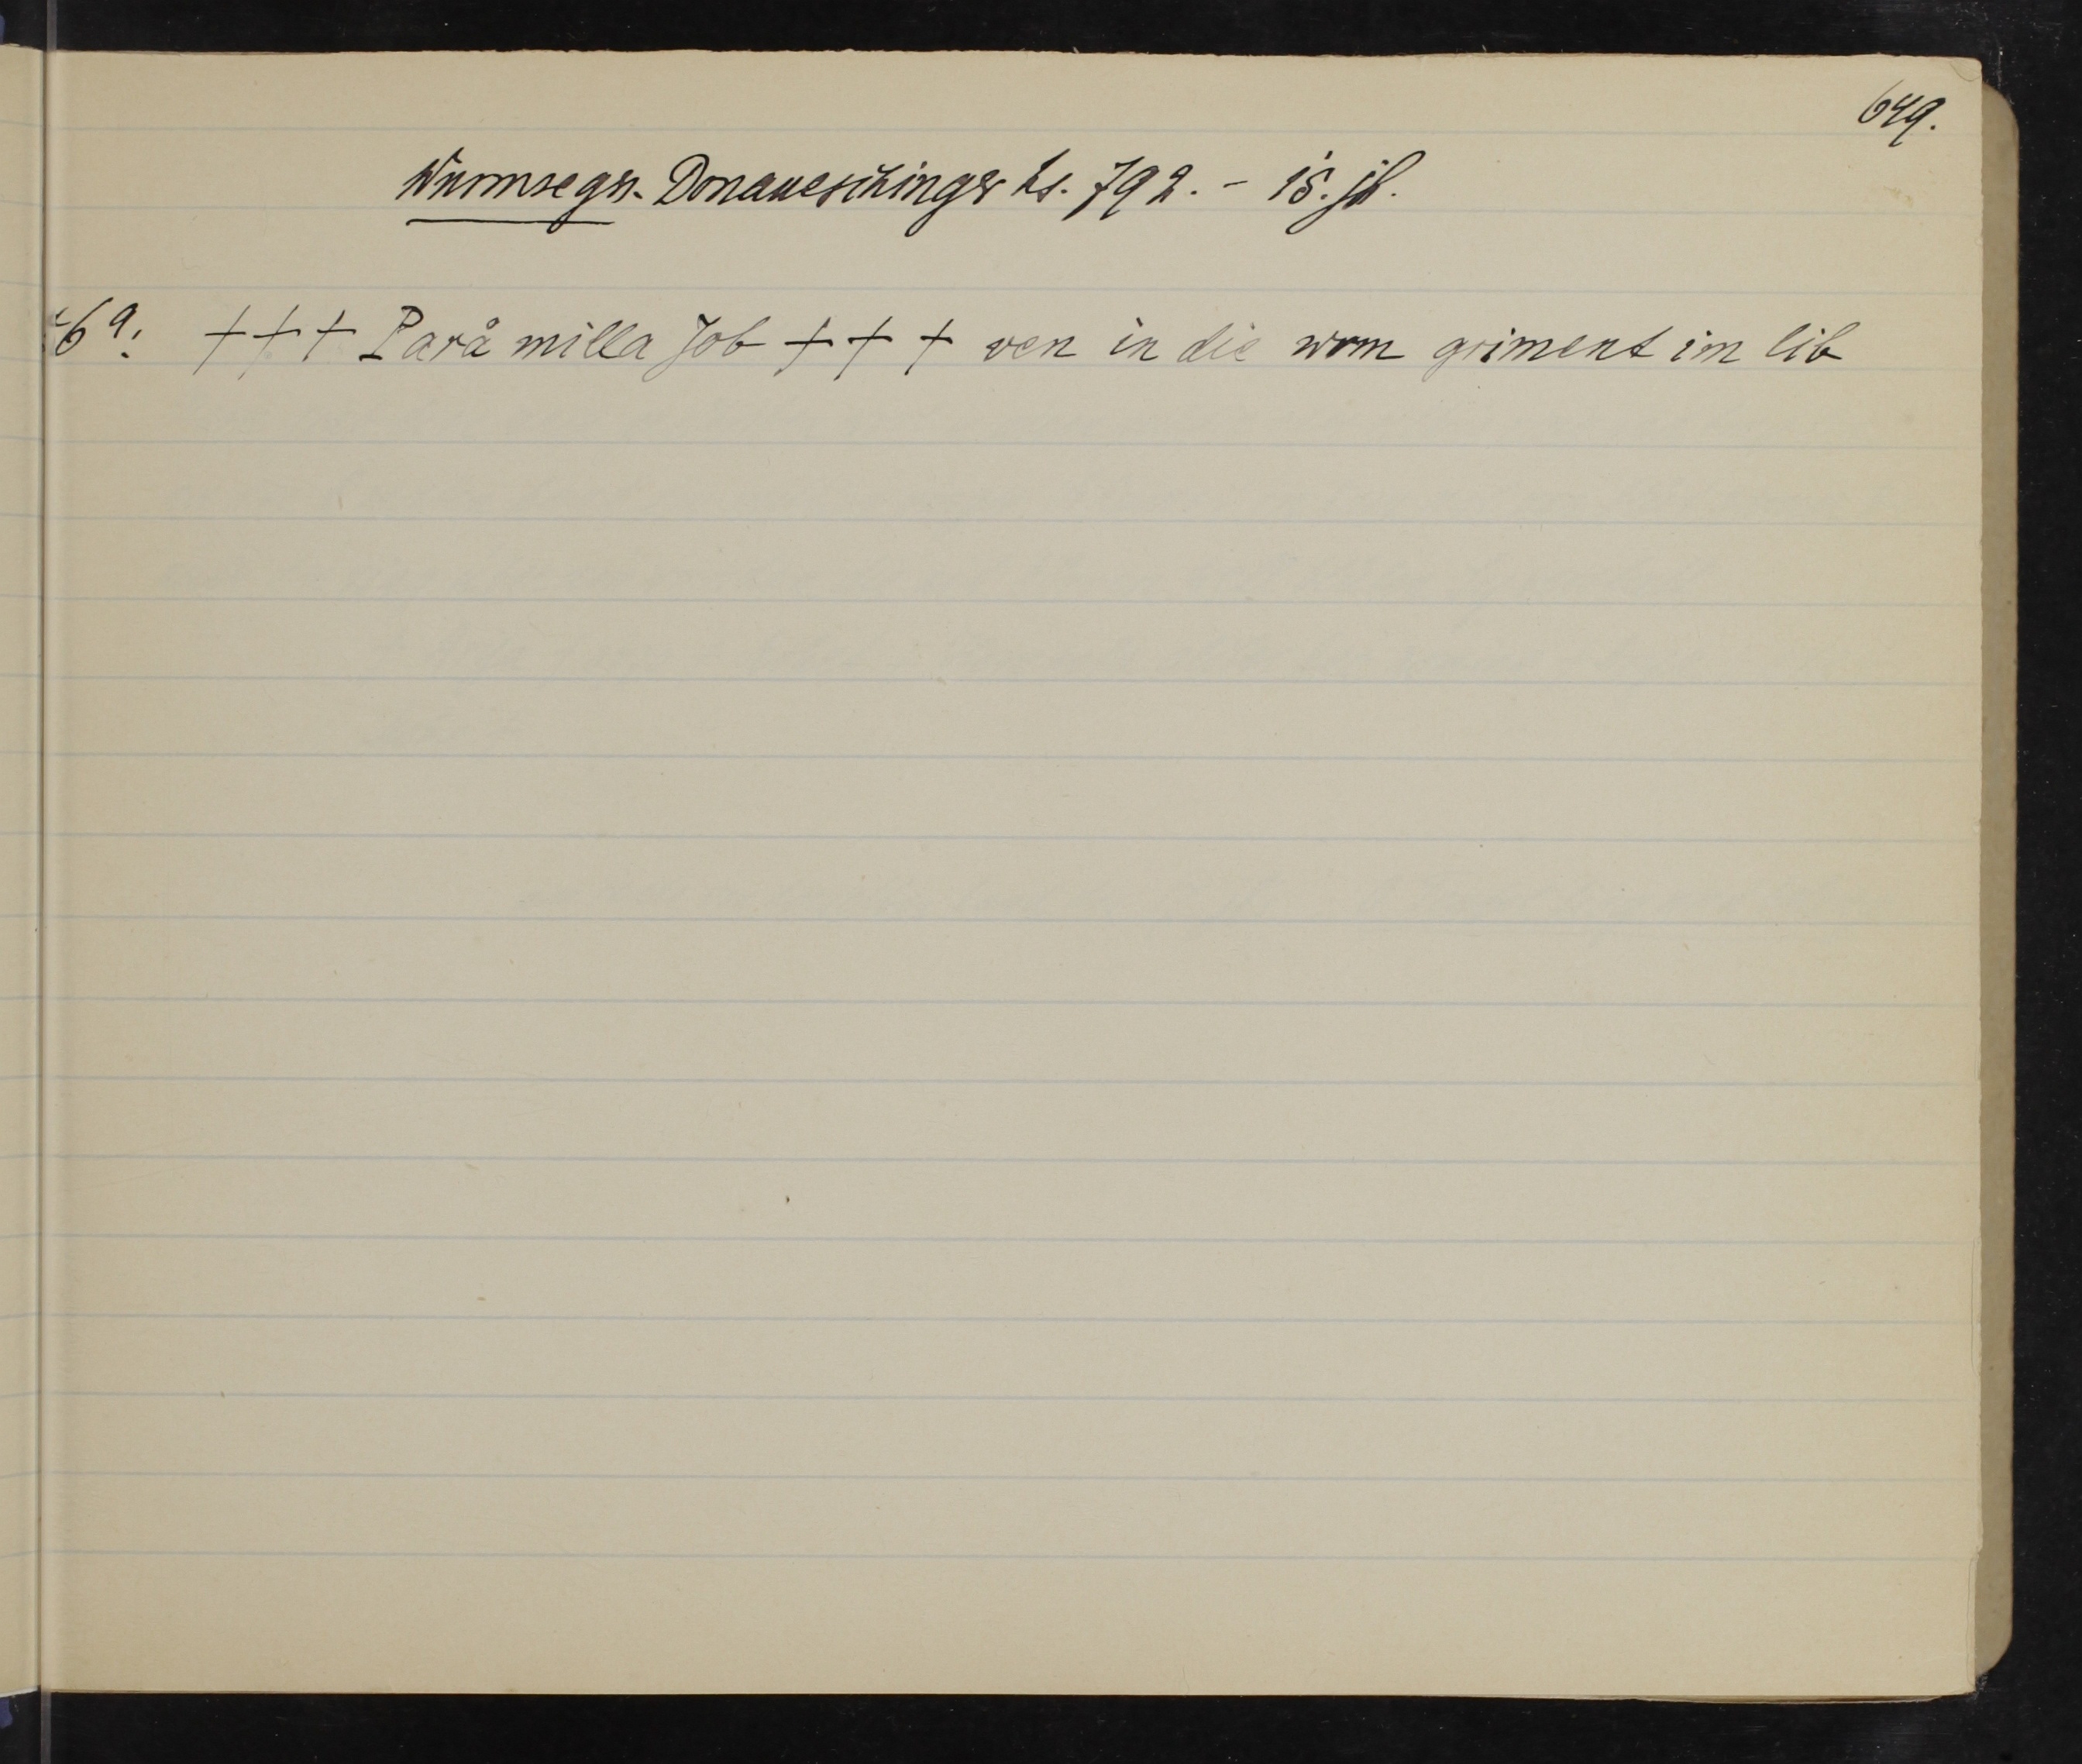 649.
Wurmsegen. Donaueschinger hs. 792. - 15. jh.
6a: + + + Parå milla Job + + + ven in die wrm griment im lib